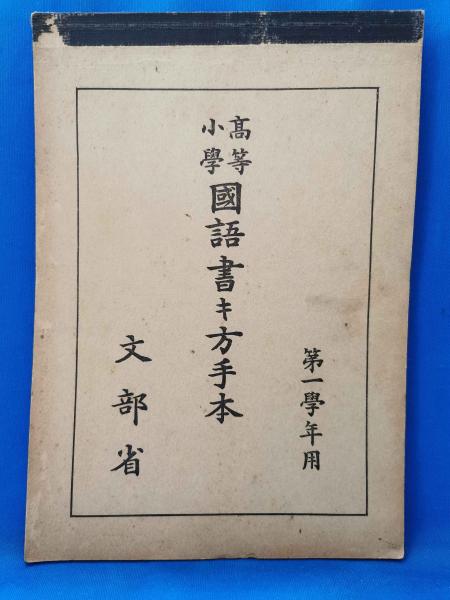 第一學年用
高等小學國語書キ方手本
文部省